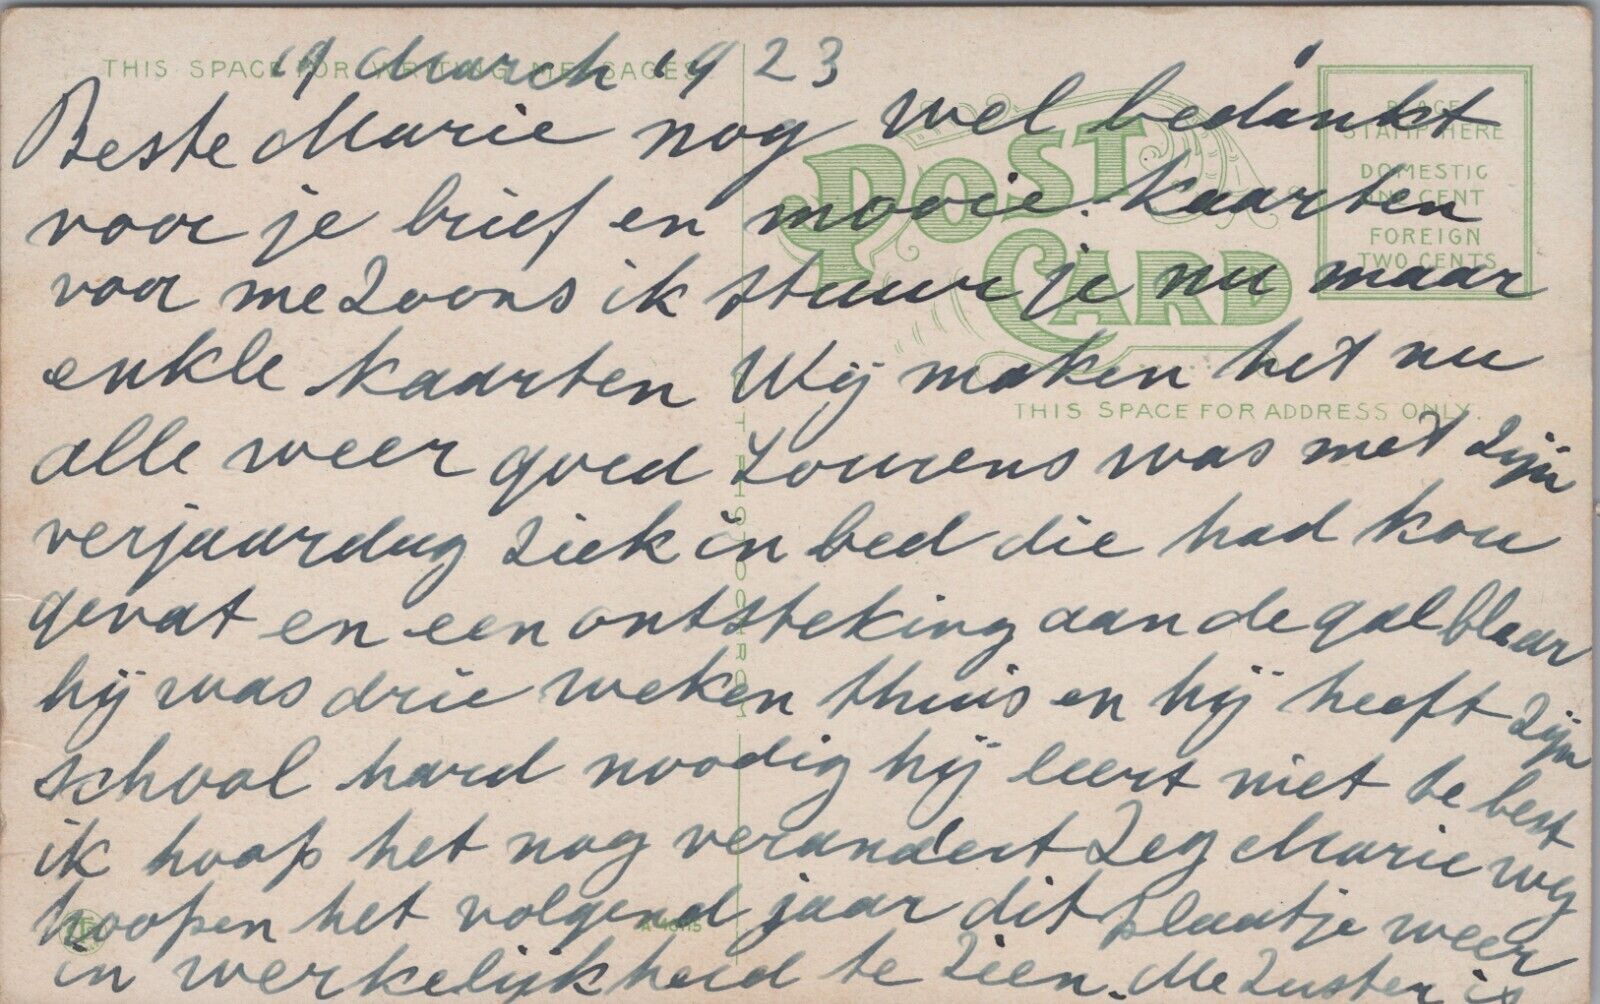 THIS SPACE FOR WRITING MESSAGES
19 March 1923
Beste Marie nog wel bedankt
voor je brief en mooie kaarten
voor me Zoons ik stuur je nu maar
enkle kaarten Wij maken het nu
alle weer goed Lourens was met Zijn
verjaardag Ziek in bed die had kou
gevat en een ontsteking aan de galblaar
hij was drie weken thuis en hij heeft Zijn
school hard noodig hij leert niet te best
ik hoop het nog verandert Zeg Marie wy
hoopen het volgend jaar dit plaatje weer
in werkelijkheid te Zien. Me Zuster is
POST CARD
PLACE
STAMP HERE
DOMESTIC
ONE CENT
FOREIGN
TWO CENTS
THIS SPACE FOR ADDRESS ONLY.